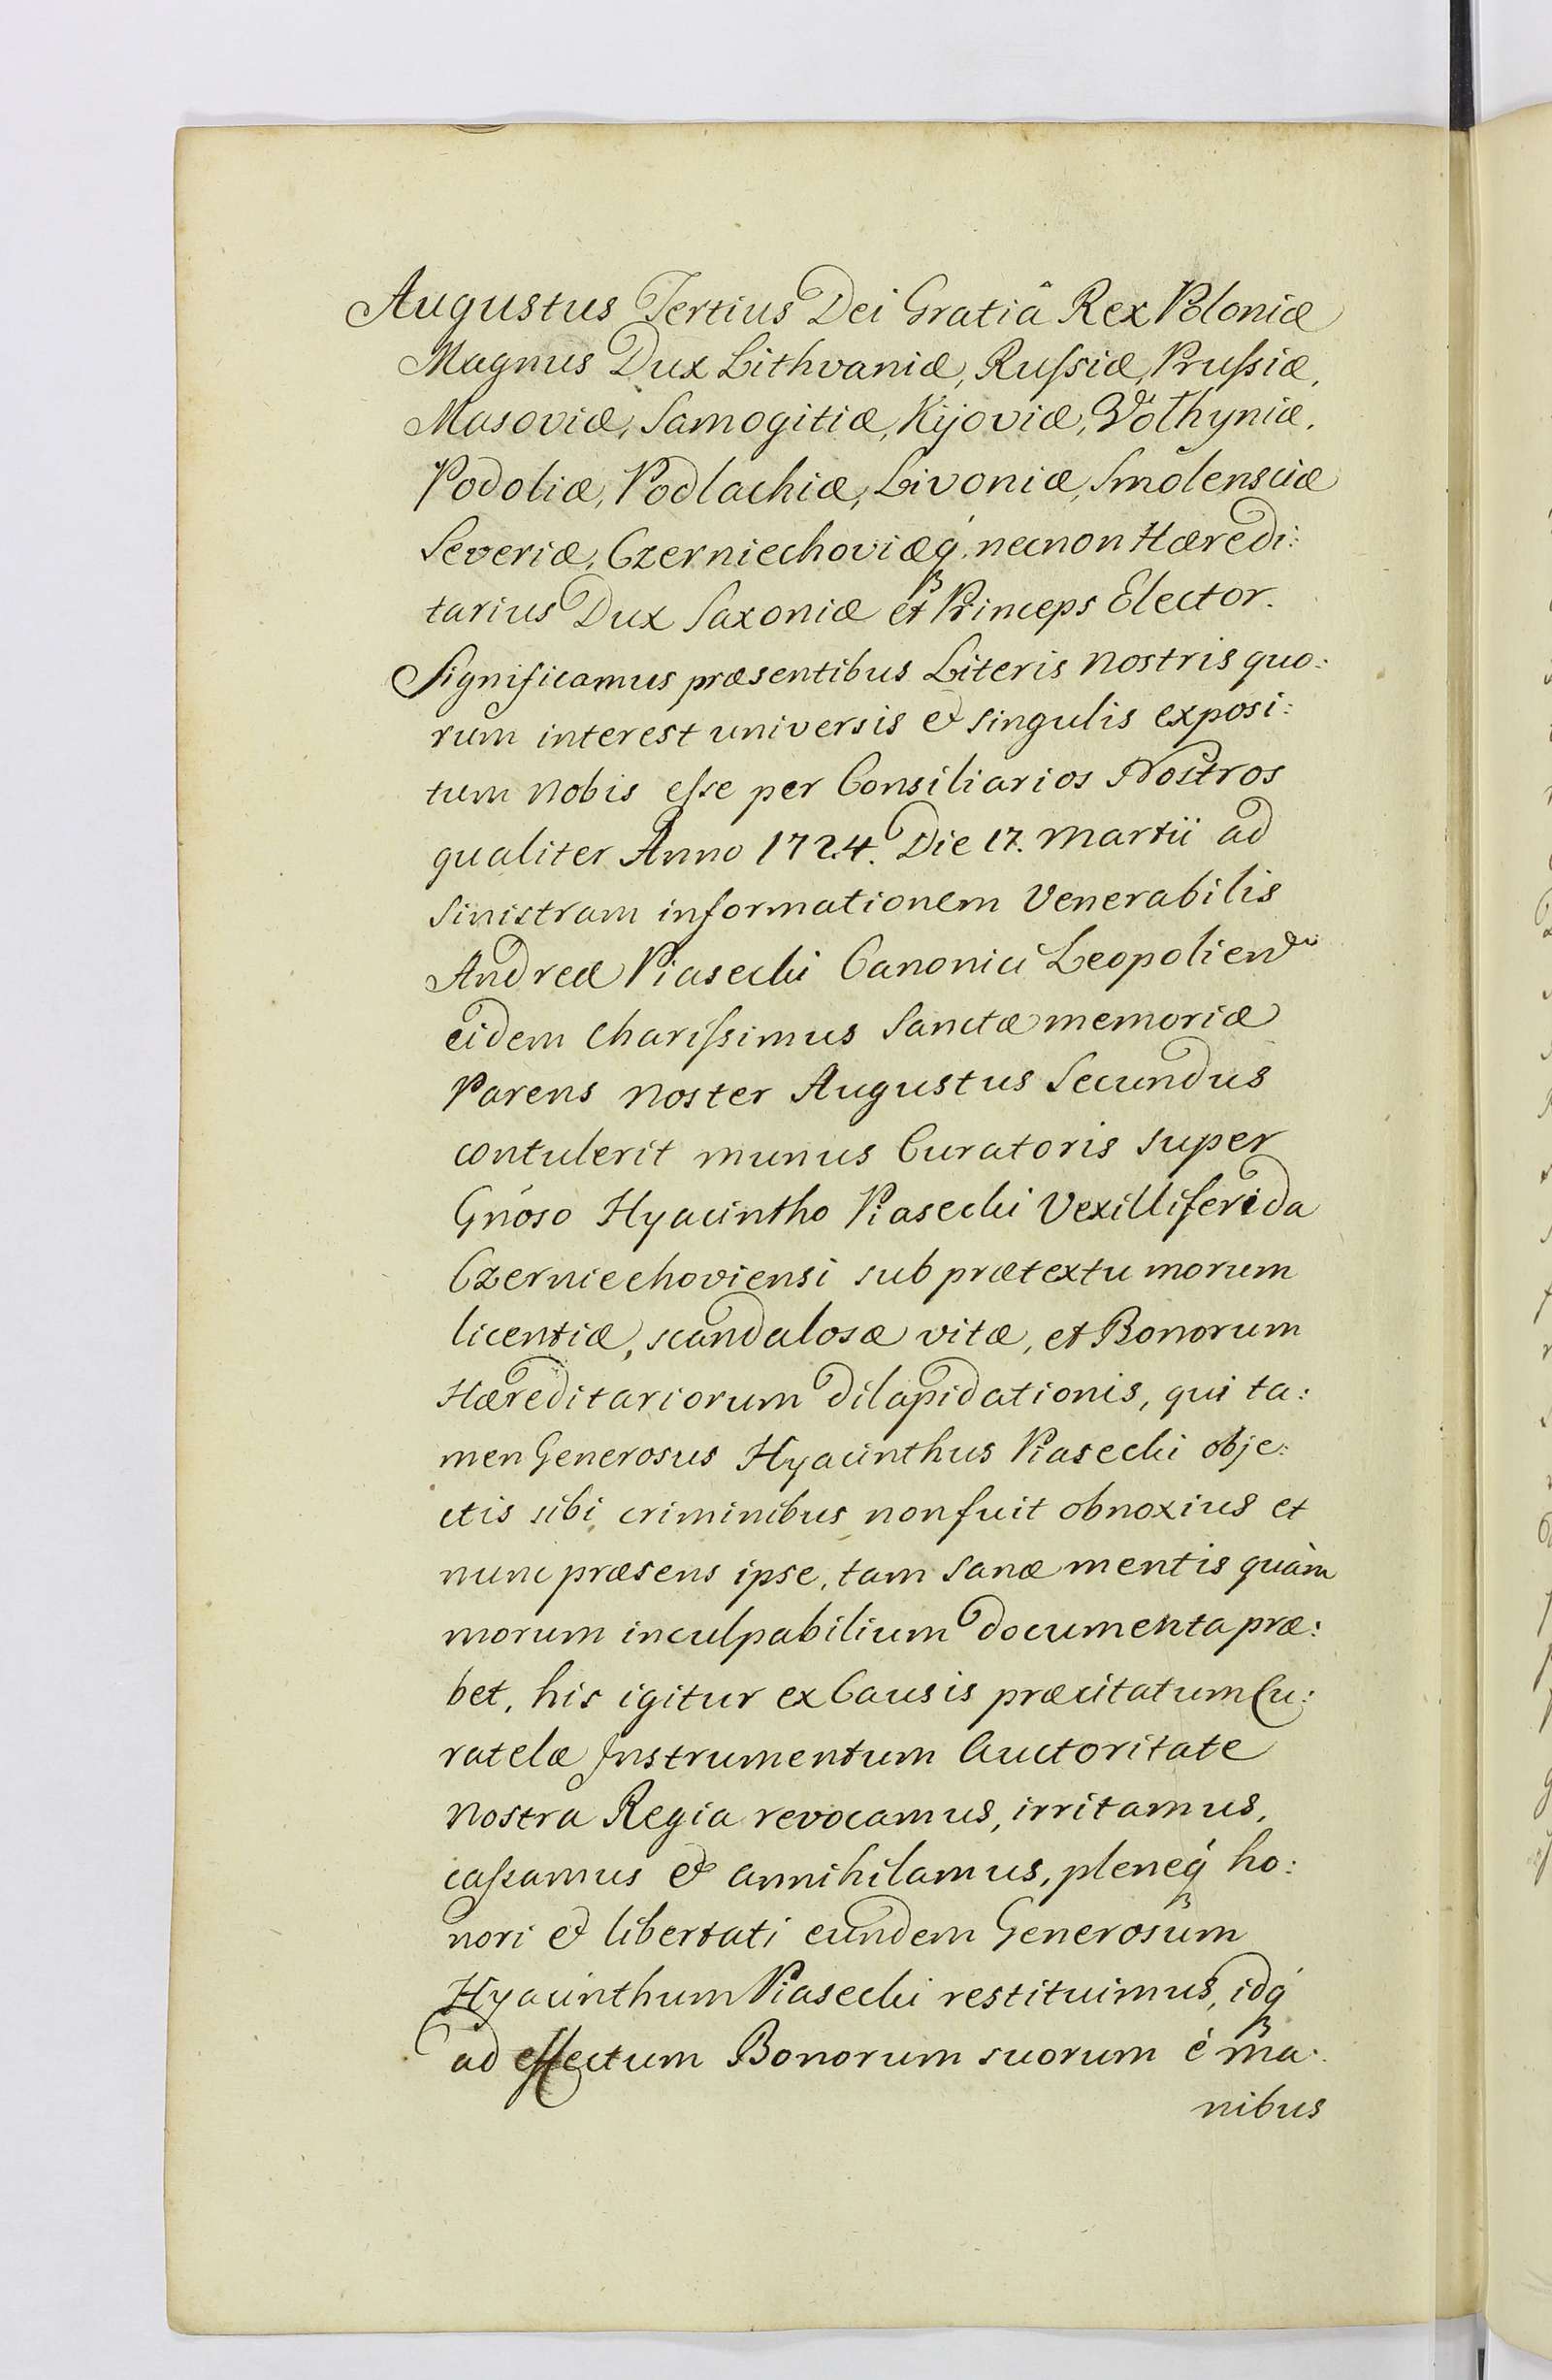 Augustus Tertius Dei Gratiâ Rex Poloniæ
Magnus Dux Lithvaniæ, Russiæ, Prussiæ,
Masoviæ, Samogitiæ, Kijoviæ, Volhyniæ,
Podoliæ, Podlachiæ, Livoniæ, Smolensciæ
Severiæ, Czerniechoviæq́ꝫ necnon Hæredi:
tarius Dux Saxoniæ et Princeps Elector.
Significamus præsentibus Literis nostris quo:
rum interest universis & singulis exposi:
tum nobis esse per Consiliarios Nostros
qualiter Anno 1724. Die 17. Martii ad
sinistram informationem Venerabilis
Andreæ Piasecki Canonici Leopolien
eidem Charissimus Sanctæ memoriæ
Parens noster Augustus Secundus
contulerit munus Curatoris super
Gnoso Hyacintho Piasecki Vexilliferida
Czerniechoviensi sub prætextu morum
licentiæ, scandalosæ vitæ, et Bonorum
Hæreditariorum dilapidationis, qui ta:
men Generosus Hyacinthus Piasecki obje:
ctis sibi criminibus non fuit obnoxius et
nunc præsens ipse, tam sanæ mentis quàm
morum inculpabilium documenta præ:
bet, his igitur ex Causis præcitatum Cu:
ratelæ Instrumentum Auctoritate
nostra Regia revocamus, irritamus,
cassamus & annihilamus, pleneq́ꝫ ho:
nori & libertati eundem Generosum
Hyacinthum Piasecki restituimus, idq́ꝫ
ad effectum Bonorum suorum è ma:
nibus